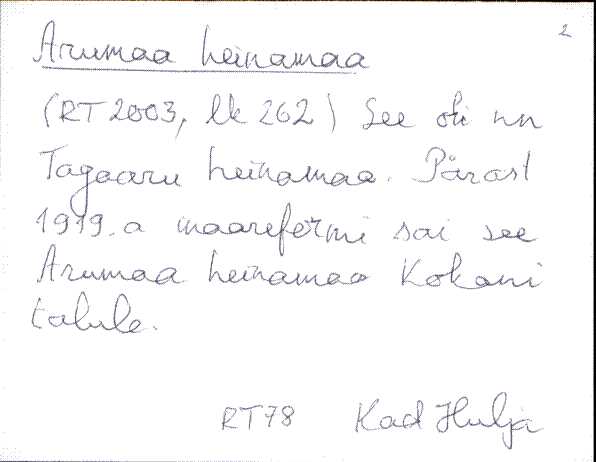 2
Arumaa heinamaa
(RT 2003, lk 262) See oli nn
Tagaaru heinamaa. Pärast
1919. a maareformi sai see
Arumaa heinamaa Kokani
talule.
RT78 Kad Hulja